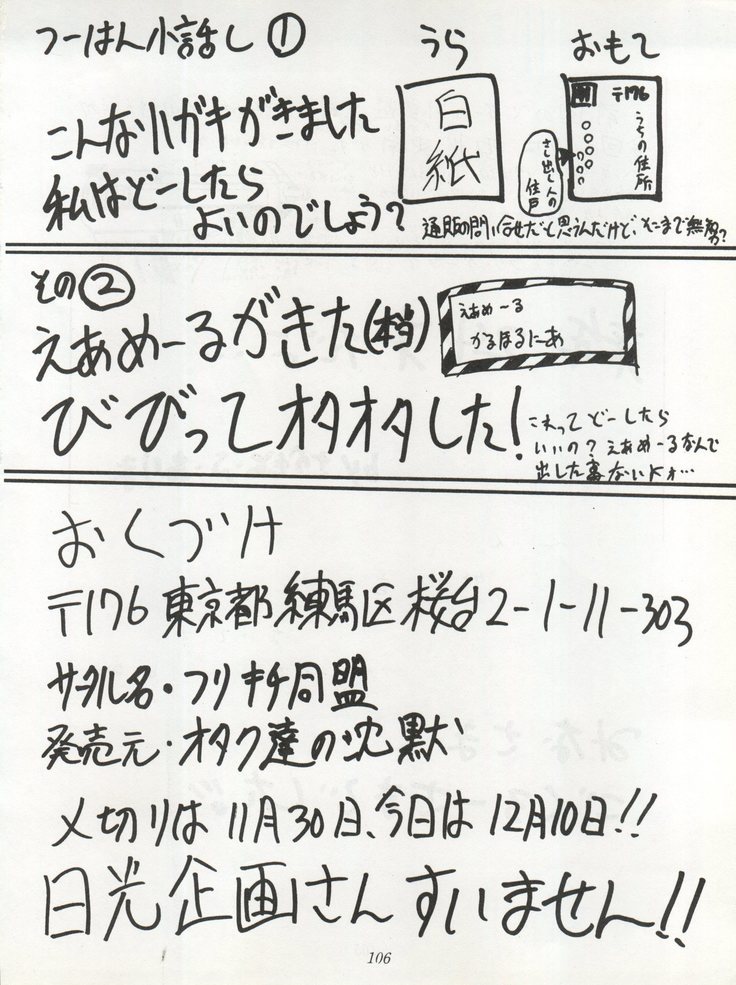 つーはん小話し ①
こんなハガキがきました
私はどーしたら
よいのでしょう?
うら
白紙
おもて
〒176
うちの住所
さし出し人の
住所
通販の問い合せだと思うんだけど、そこまで無知?
その②
えあめーるがきた(本当)
えあめーる
かるほるにーあ
びびってオタオタした!
これってどーしたら
いいの?えあめーるなんて
出した事ないよォ…
おくづけ
〒176 東京都練馬区桜台2-1-11-303
サークル名・フリキチ同盟
発売元・オタク達の沈黙
〆切りは11月30日、今日は12月10日!!
日光企画さんすいません!!
106